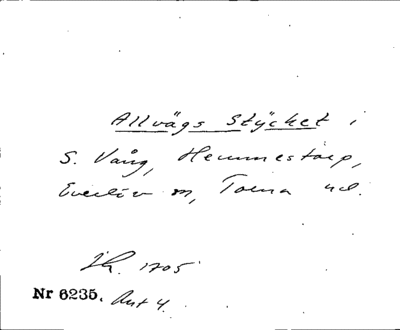 Allvägs Stÿcket i
S. Vång, Hemmestorp,
Everlöv sn, Torna hd.
Jb. 1705
Nr 6235. Ant 4.